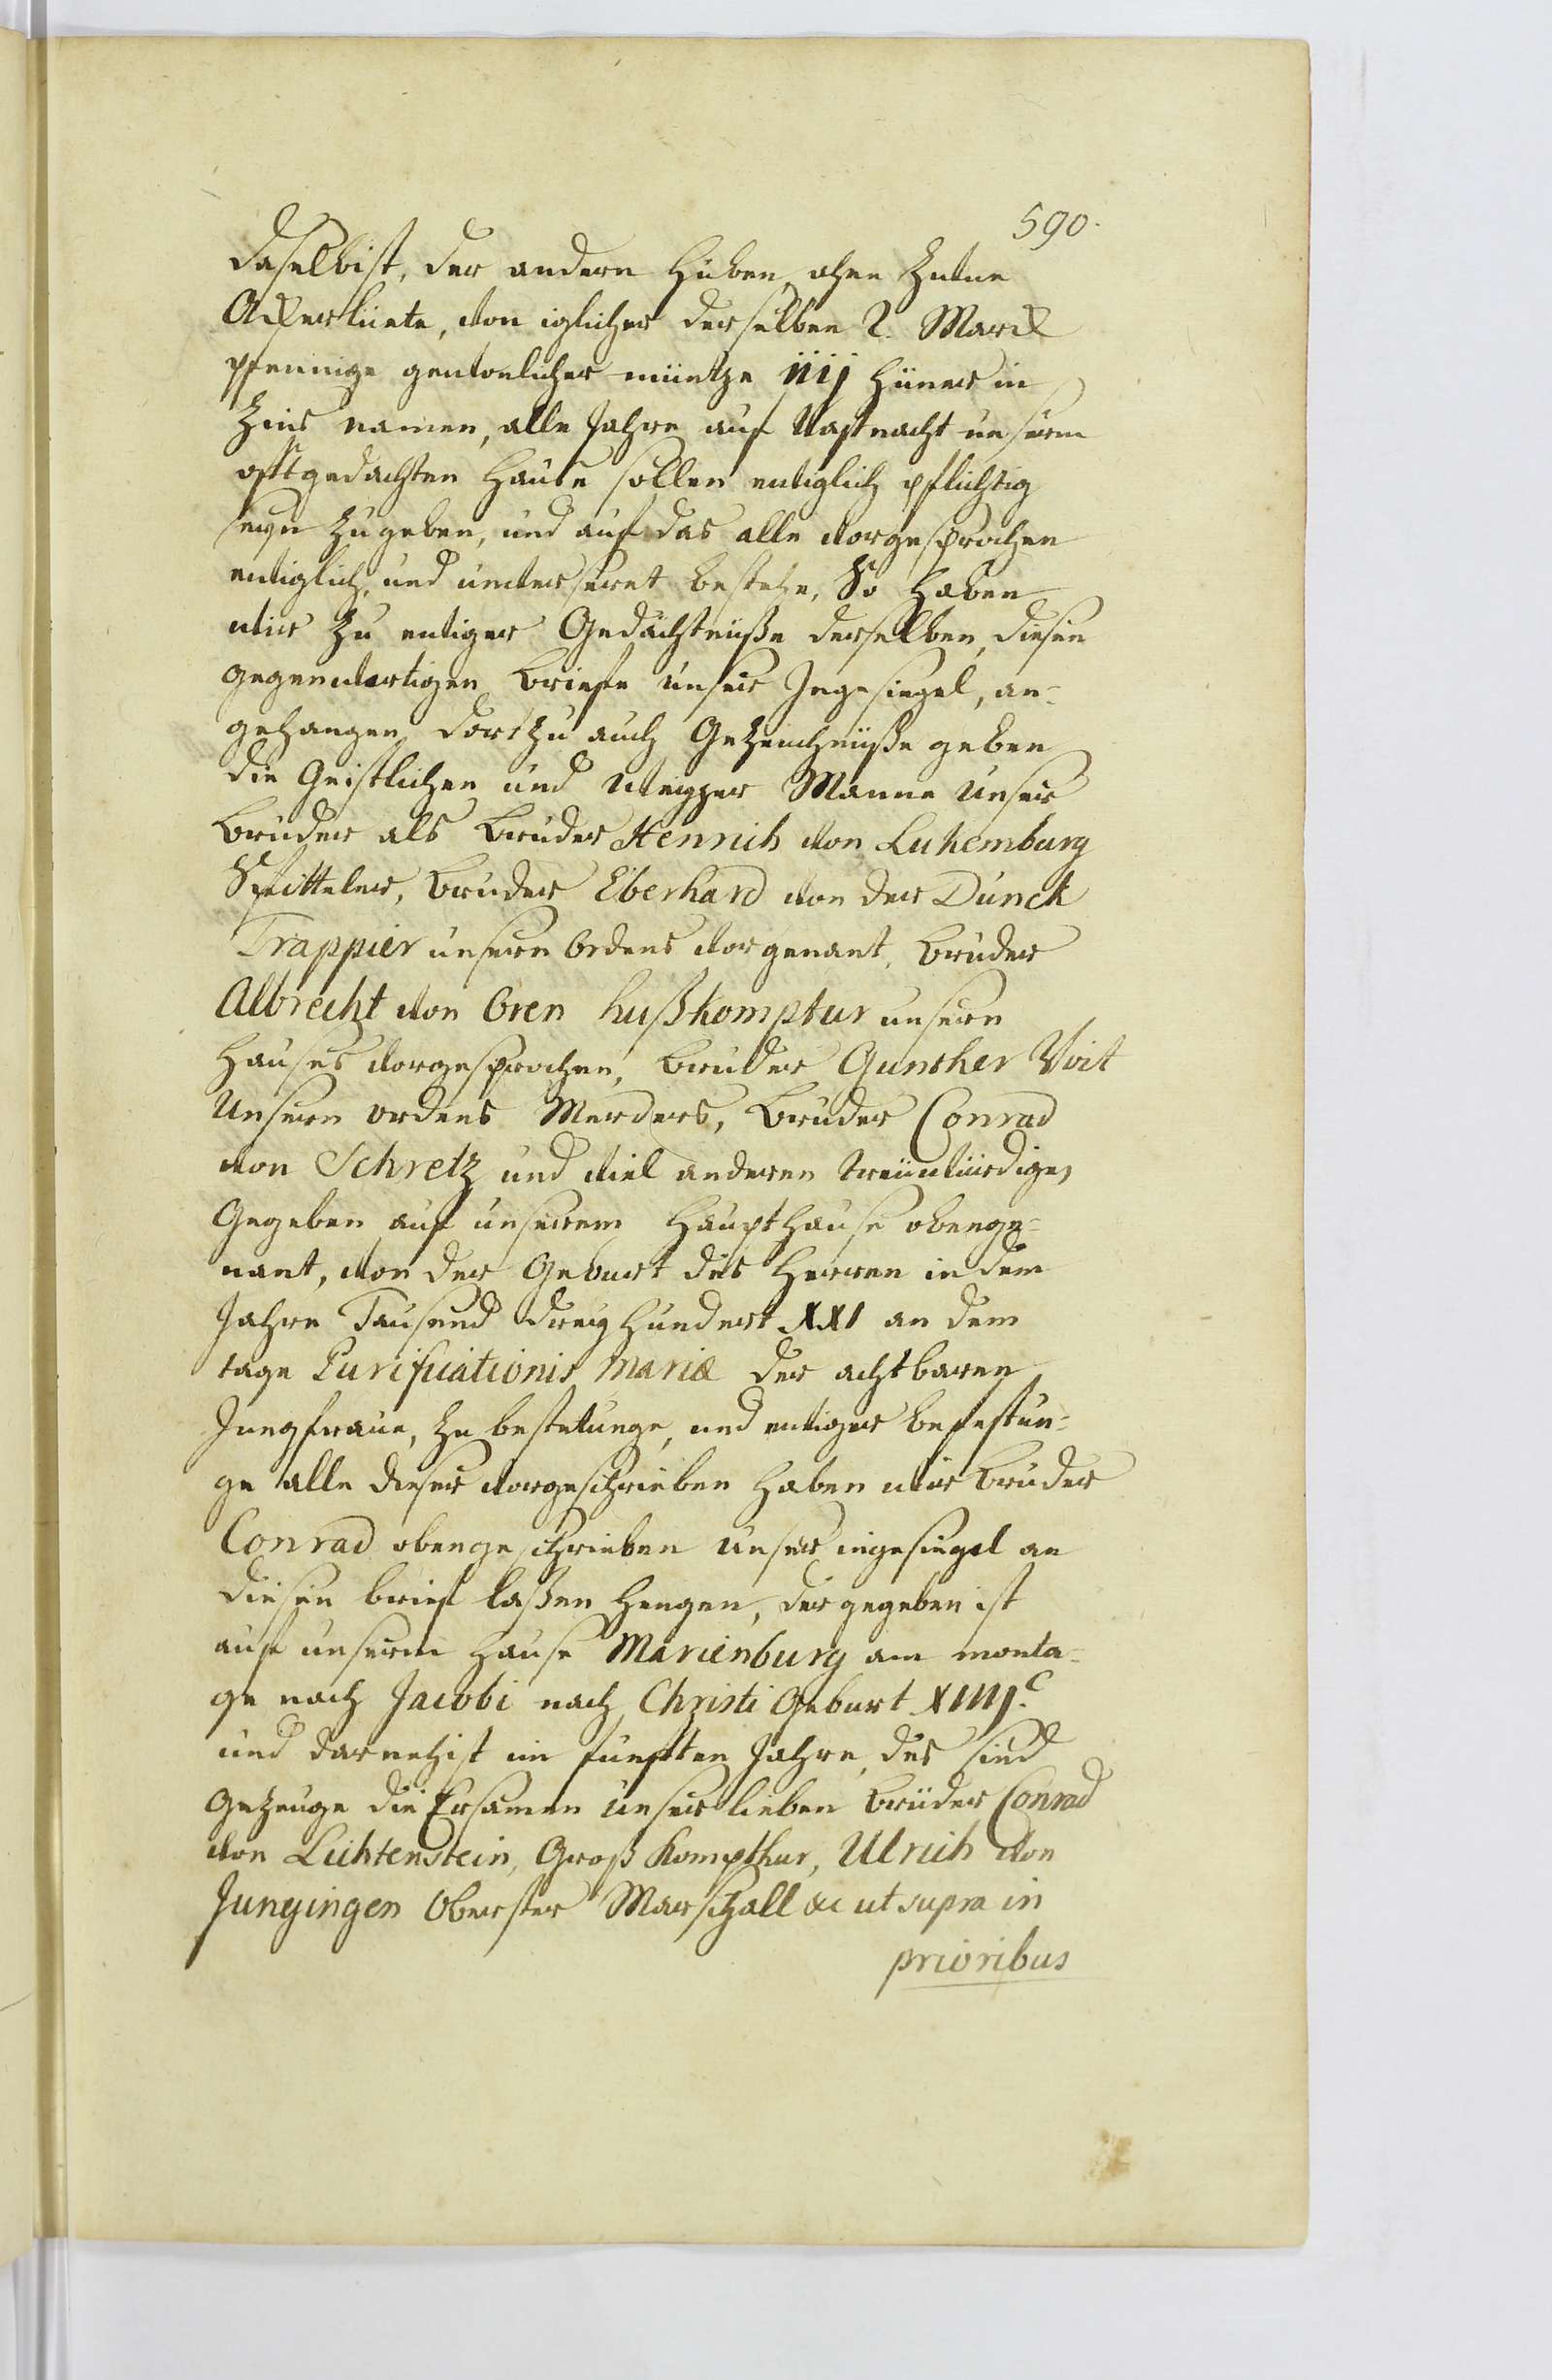 590.
daselbist, der andern Huben, ohne Zutue
Akkerlüete, von iglicher derselben 2. Marck
pfennige gentvelicher müntze iiij hüner in
Zins namen, alle Jahre auf Vastnacht unserm
offtgedachten Hause sollen entiglich pflichtig
seyn zu geben, und auf das alle vorgesprochen
entiglich, und unverseret bestehe, So haben
wir zu entiger Gedächtnüße derselben, diesen
gegenwertigen Briefe unser Ingesiegel, an-
gehangen, dortzu auch Gezeuchnüße geben
die Geistlichen und Weyger Manne Unser
Bruder als Bruder Henrich von Luhemburg
Spitteler, Bruder Eberhard von der Dunck
Trappier unsern Ordens vorgenant, Bruder
Albrecht von Oren hußkomptur unsern
Hauses vorgesprochen, Bruder Gunther Voit
Unsern ordens Merders, Bruder Conrad
von Schretz und viel anderen Treüwürdige,
Gegeben auf unserem Haupthause obenge-
nant, von der Geburt des Herren in dem
Jahre Tausend dreyhundert XXI an dem
tage Purificationis Mariæ der achtbaren
Jungfraue, Zu bestetunge, und entiger befestun-
ge alle dieser vorgeschrieben haben wir Bruder
Conrad obengeschrieben unser ingesiegel an
diesen brief laßen hengen, der gegeben ist
auf unserm Hause Marienburg am monta-
ge nach Jacobi nach Christi Geburt XIIIJ.c
und darnehist im funfften Jahre, des sind
Gezeuge die Ersamen unser lieben Brüder Conrad
von Lichtenstein, Groß Kompthur, Ulrich von
Jungingen Oberster Marschall &c ut supra in
prioribus